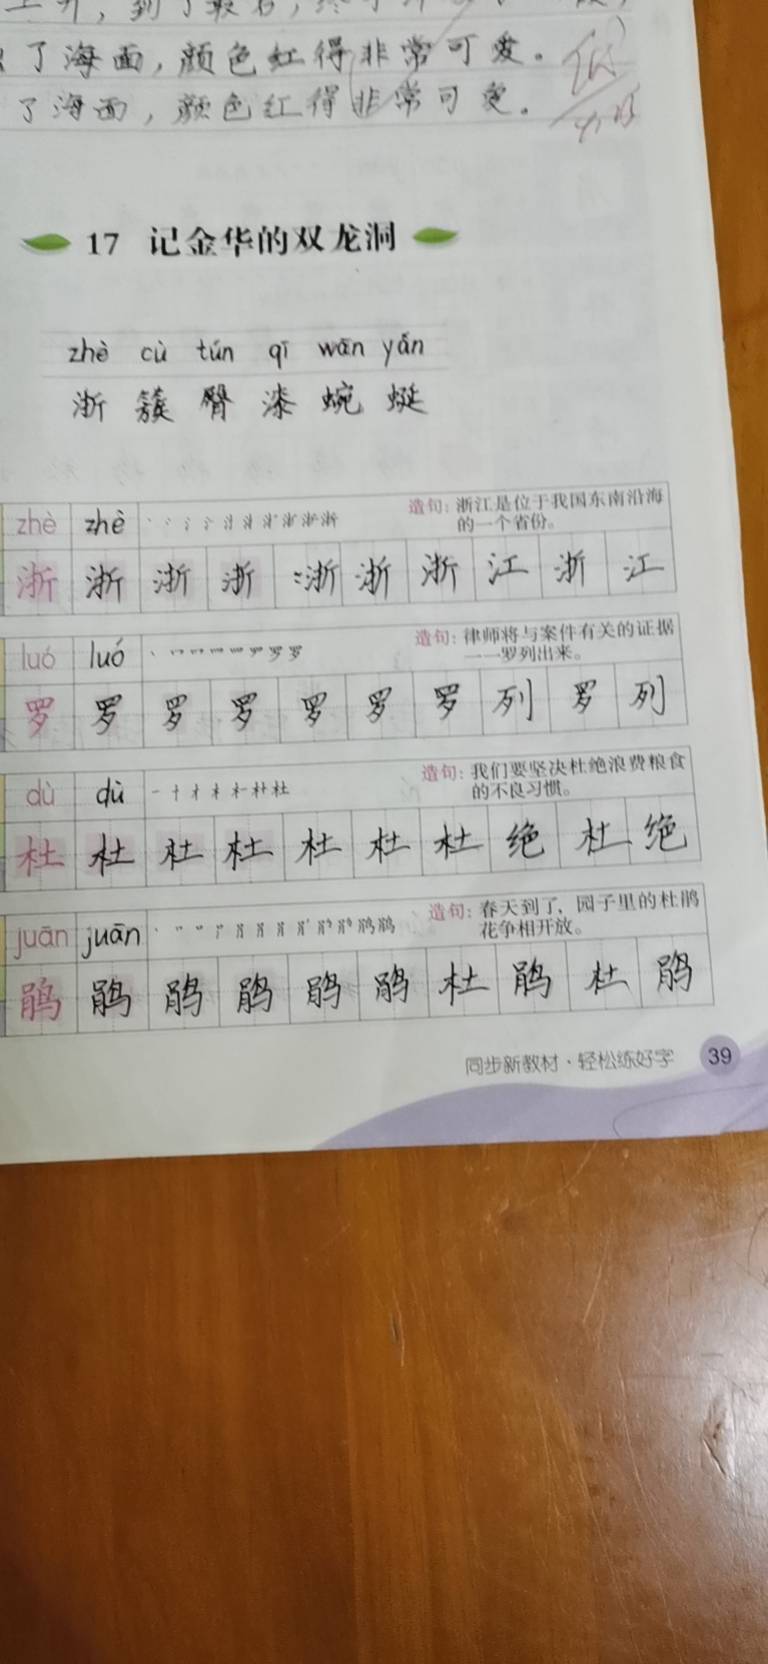 了海面，颜色红得非常可爱。
了海面，颜色红得非常可爱。
17 记金华的双龙洞
zhè cù tún qī wān yán
浙 簇 臀 漆 蜿 蜒
zhè zhè 造句：浙江是位于我国东南沿海
的一个省份。
浙 浙 浙 浙 浙 浙 浙 江 浙 江
luó luó 造句：律师将与案件有关的证据
一一罗列出来。
罗 罗 罗 罗 罗 罗 罗 列 罗 列
dù dù 造句：我们要坚决杜绝浪费粮食
的不良习惯。
杜 杜 杜 杜 杜 杜 杜 绝 杜 绝
juān juān 造句：春天到了，园子里的杜鹃
花争相开放。
鹃 鹃 鹃 鹃 鹃 鹃 杜 鹃 杜 鹃
同步新教材·轻松练好字 39